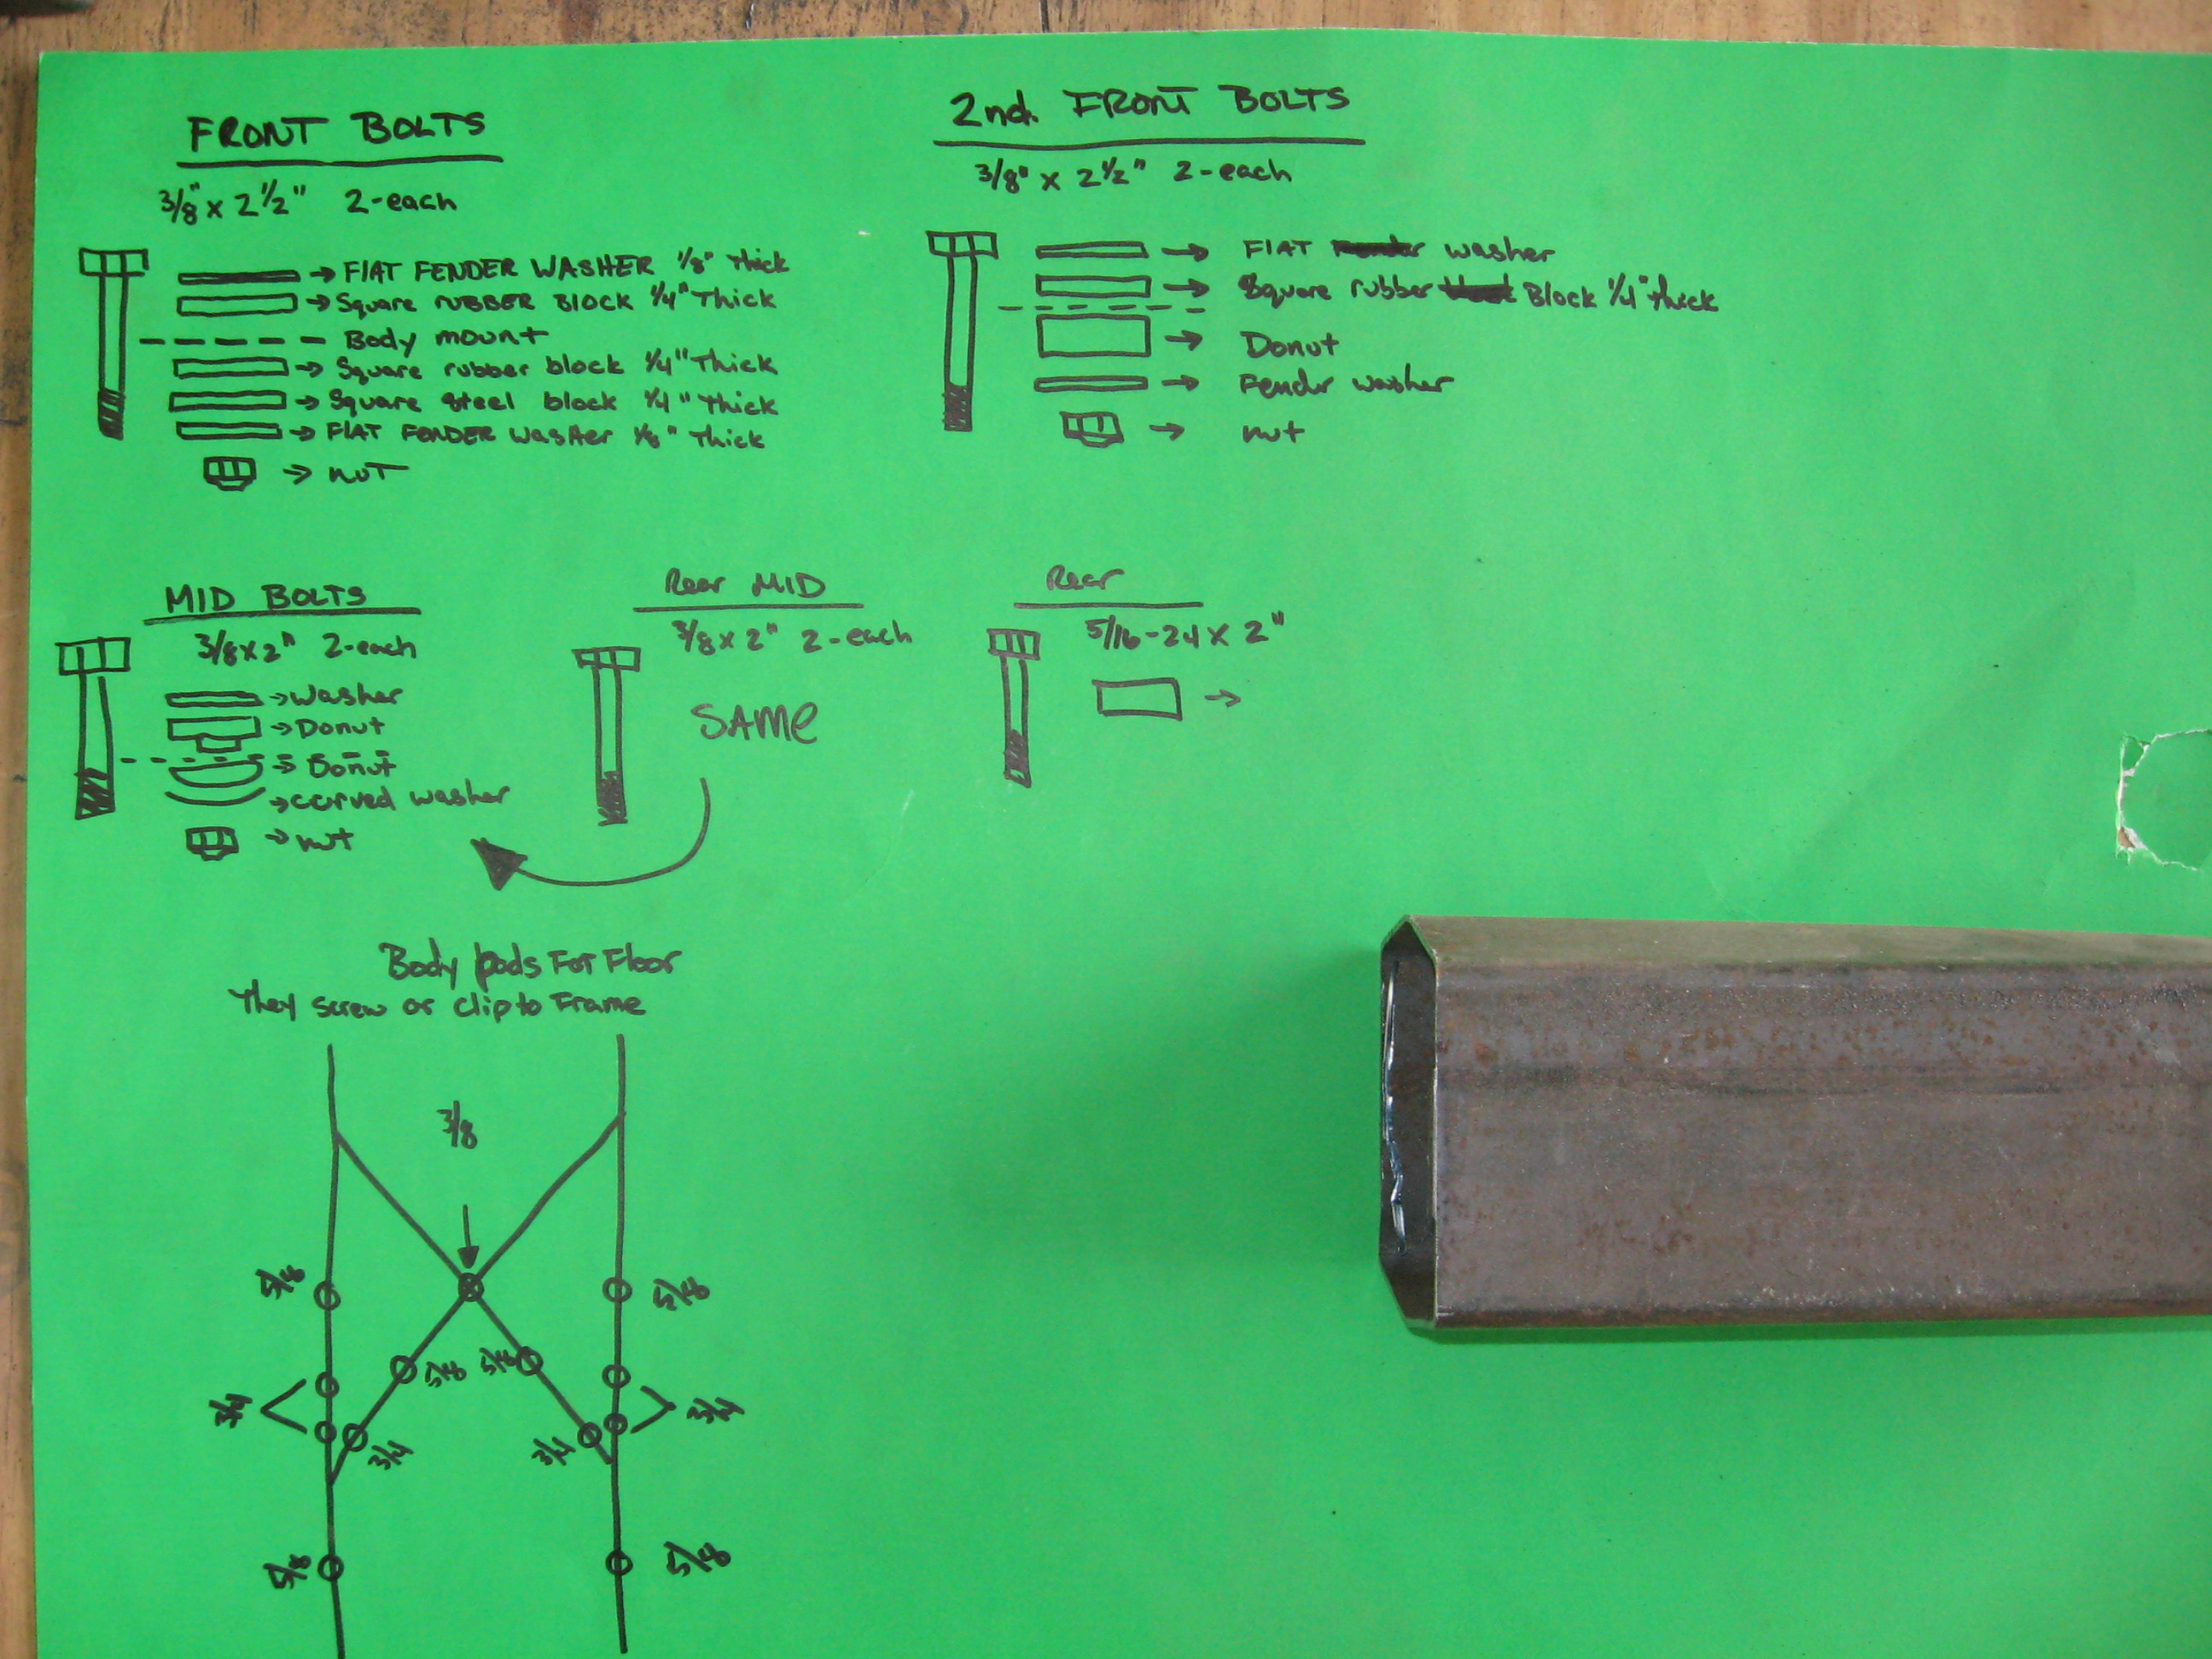 FRONT BOLTS
3/8" x 2 1/2" 2-each
FlAT FENDER WASHER 1/8" Thick
Square RUBBER Block 1/4" Thick
Body mount
Square rubber block 1/4" Thick
Square steel block 1/4" Thick
FlAT FENDER washer 1/8" Thick
nuT
2nd. FRONT BOLTS
3/8" x 2 1/2" 2-each
FlAT washer
Square rubber Block 1/4" thick
Donut
Fender washer
nut
MID BOLTS
3/8 x 2" 2-each
washer
Donut
Donut
curved washer
nut
Rear MID
3/8 x 2" 2-each
SAMe
Rear
5/16-24 x 2"
Body pads For Floor
They screw or clip to Frame
3/8
5/8
5/8
5/8
5/8
3/4
3/4
3/4
3/4
5/8
5/8